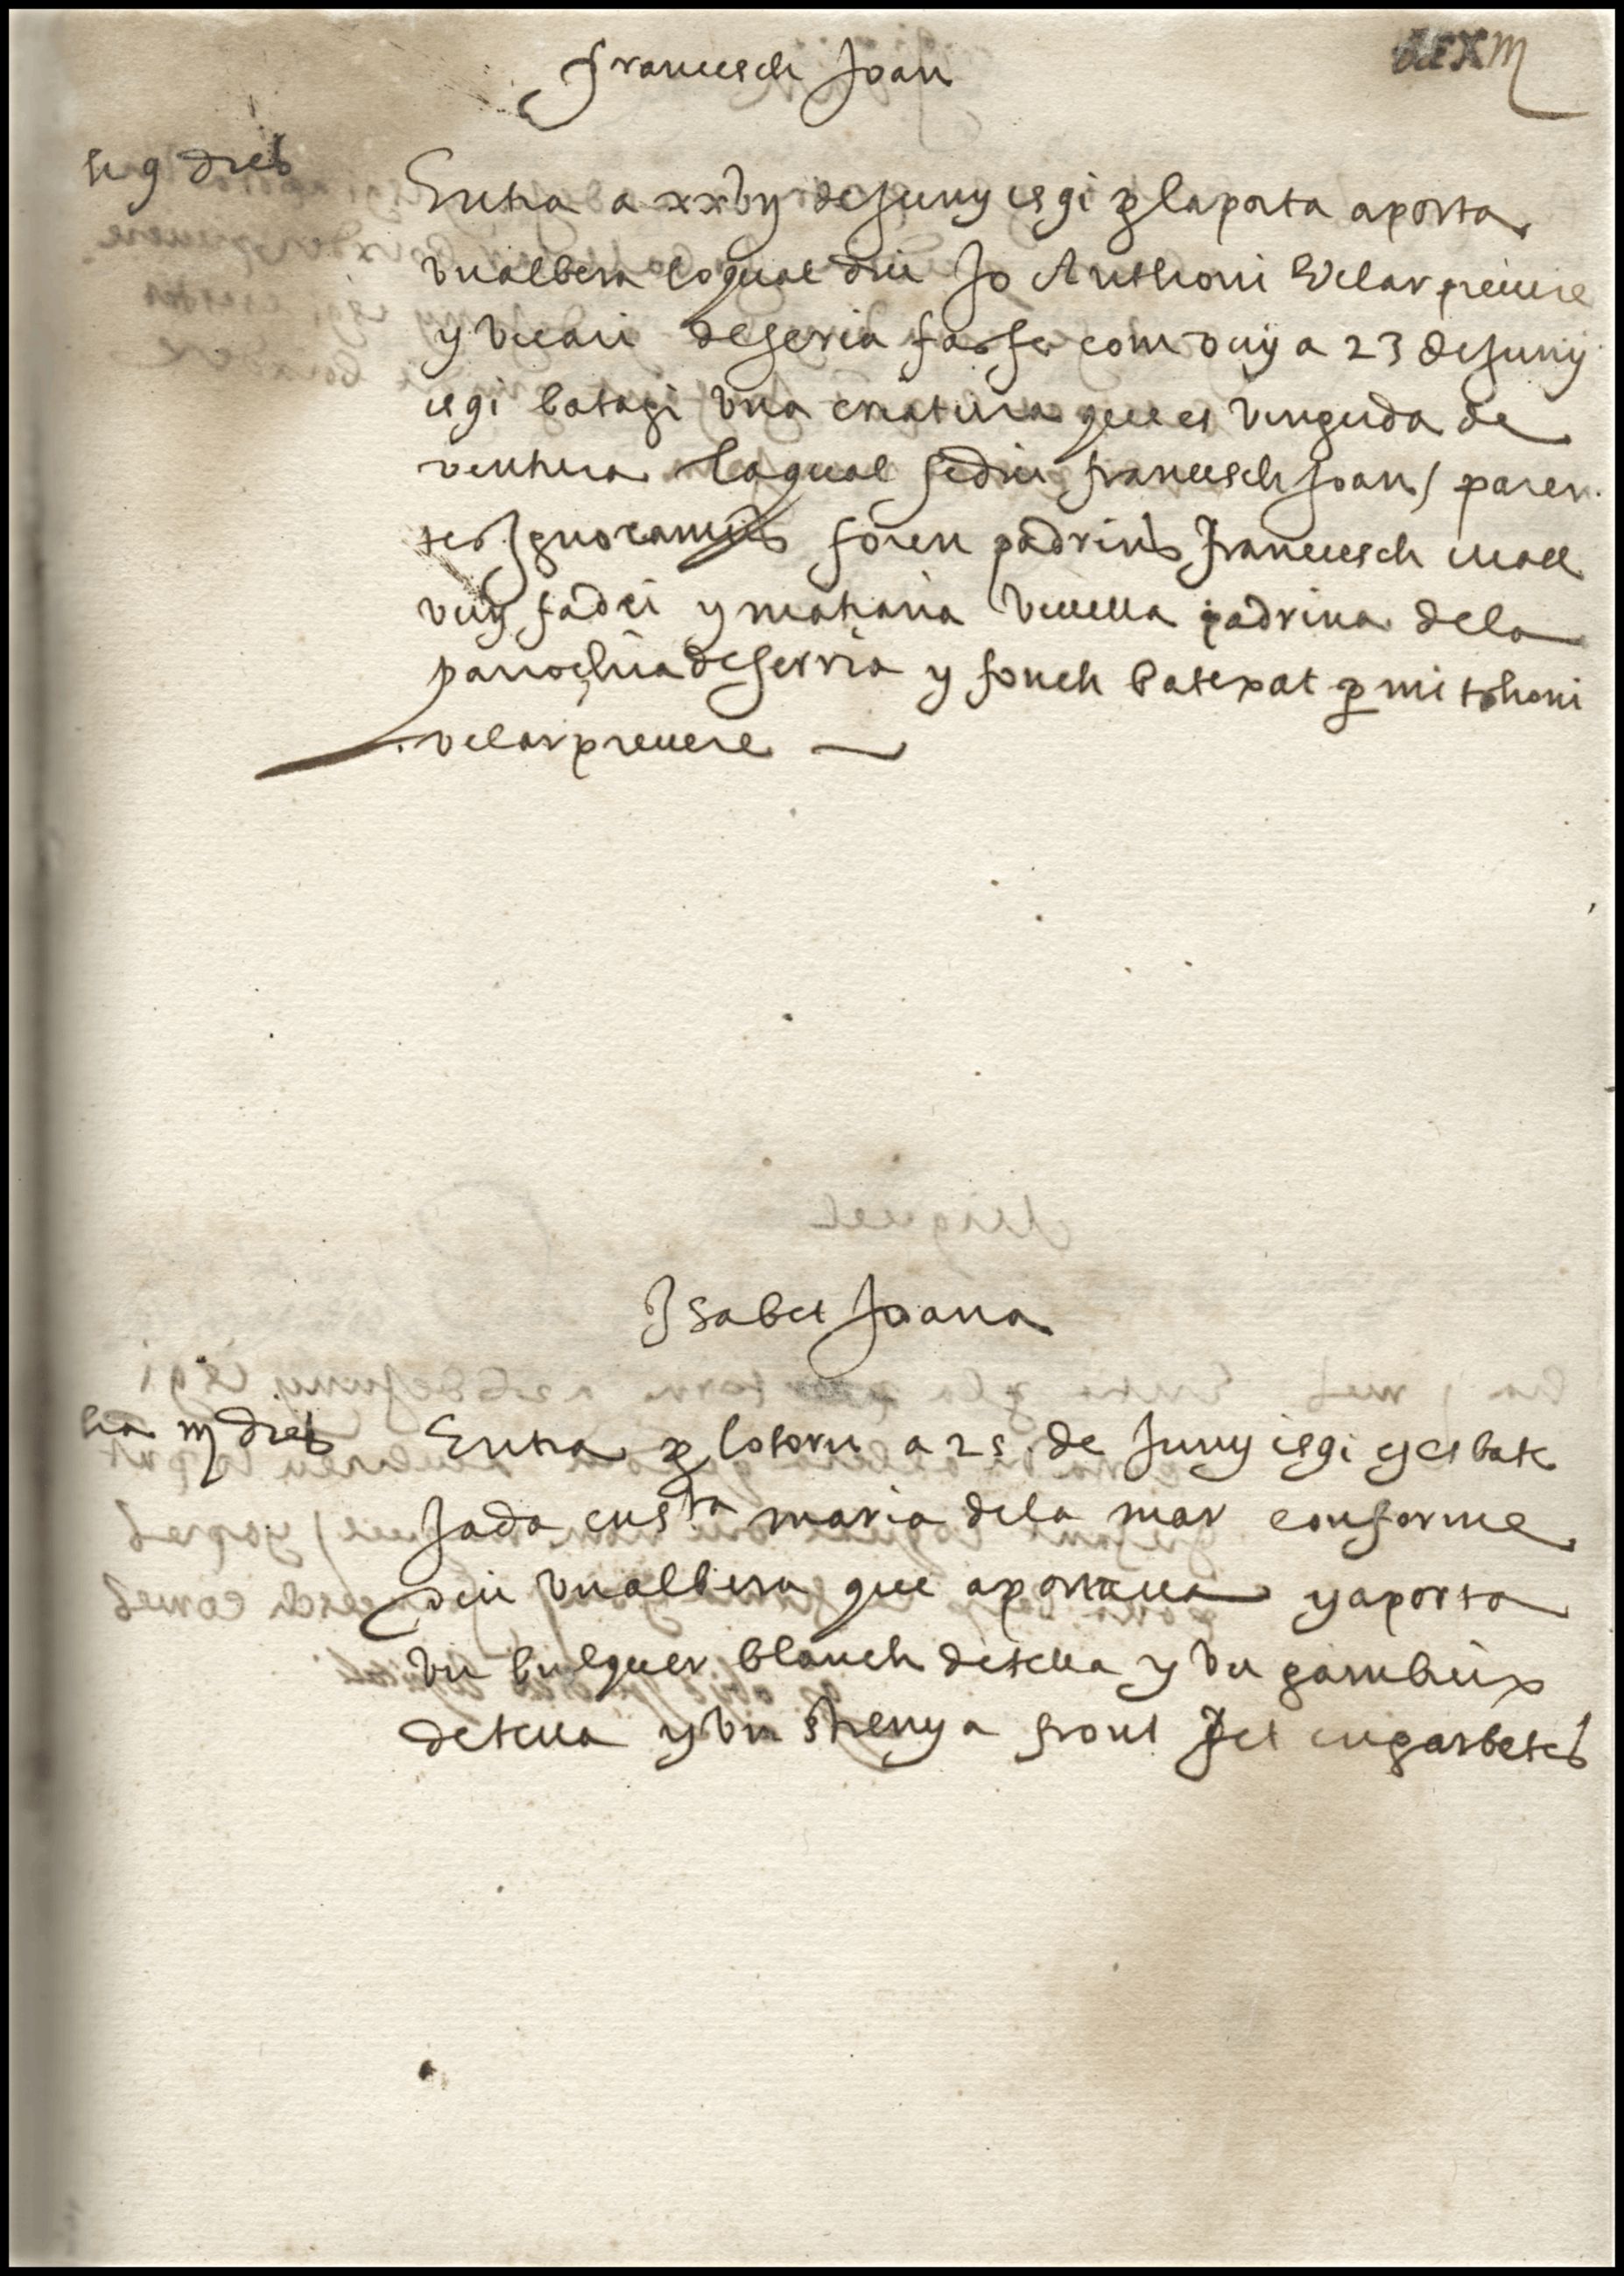 francesch Joan
te 9 dies
Entra a xxvij de Juny 1591 p la porta aporta
un albera lo qual diu Jo Anthoni Velar preuere
y vicari de seria fas fe com vuy a 23 de Juny
1591 bategi una criatura que es vinguda de
ventura la qual se diu francesch Joan / paren
tes Ignoramus foren padrins francesch
vuy fadri y mariana padrina de la
parrochia de serria y fonch batexat p mi thoni
velar preuere
Isabet Joana
ha iij dies
Entra p lo torn a 25 de Juny 1591 y es bate
jada en sta maria de la mar conforme
diu un albera que aportaua y aporta
un bulquer blanch de tela y un gambuix
de tela y un streny a front